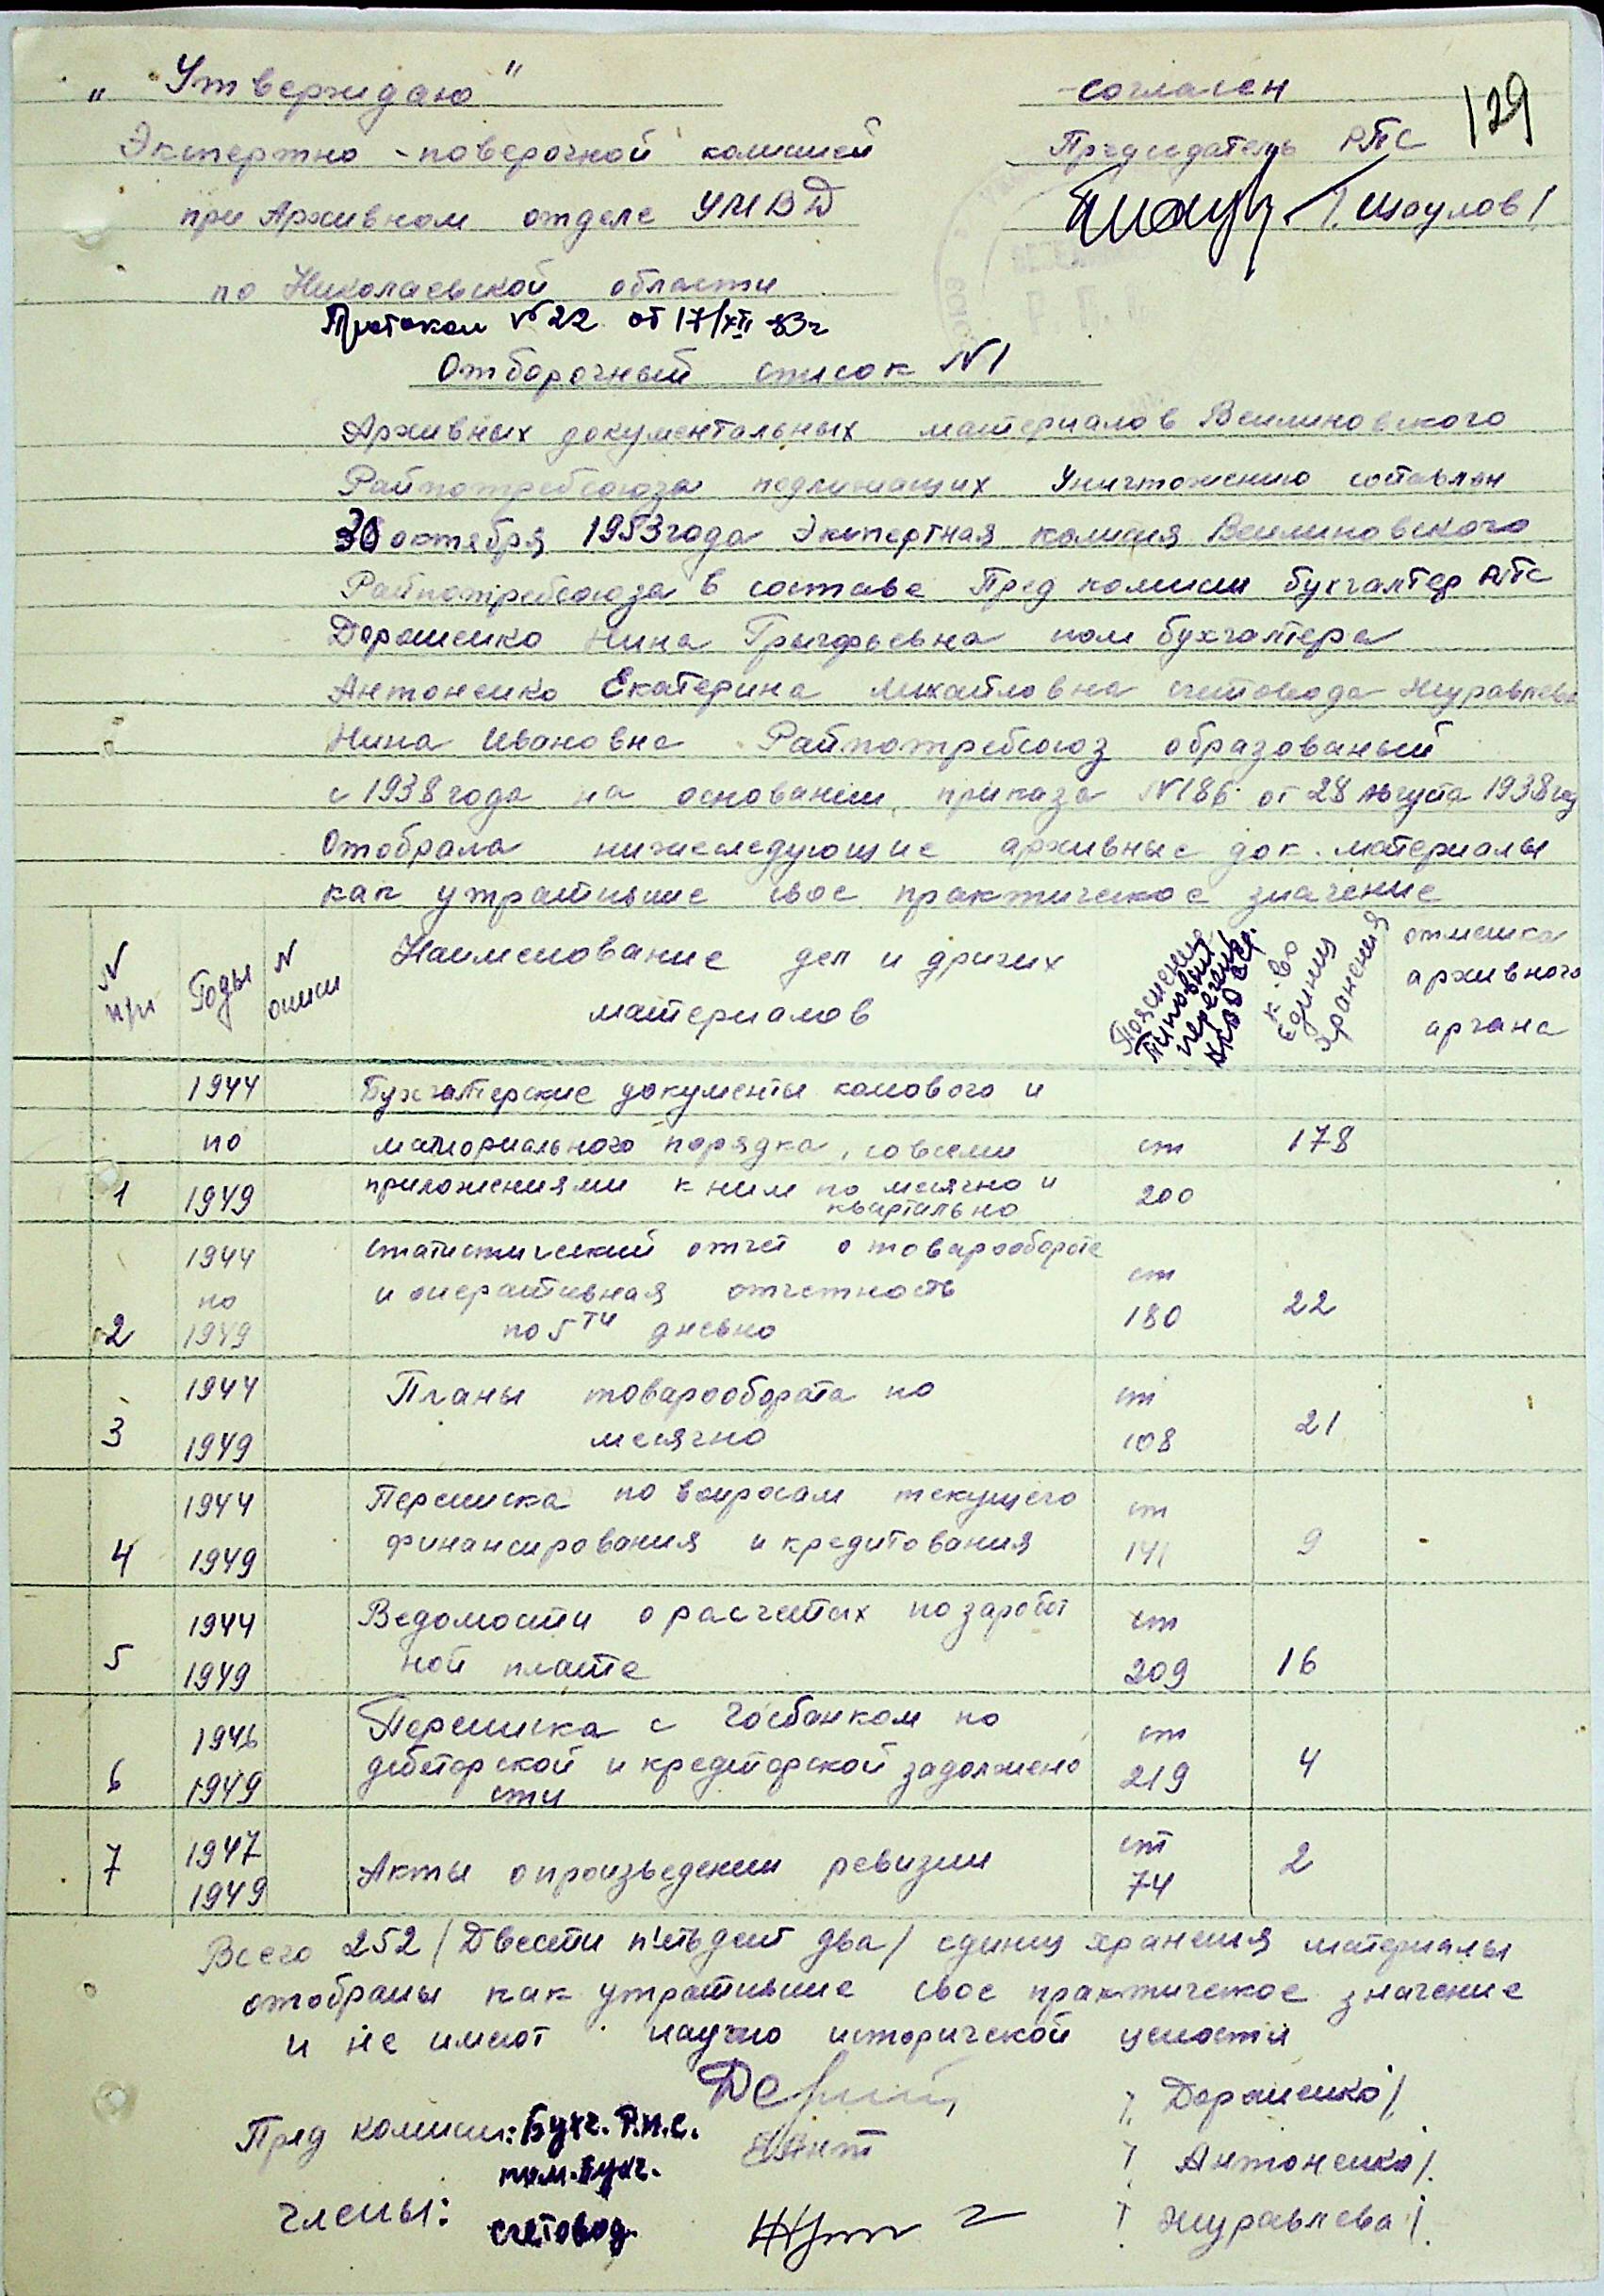 „Утверждаю"
Экспертно-поверочной комисией
при Архивном отделе УМВД
по Николаевской области
Протокол №22 от 17/XII 53г
согласен
Председатель РПС
/Шаулов/
129
Отборочный список №1
Архивных документальных материалов Веселиновского
Райпотребсоюза подлежащих Уничтожению составлен
30 октября 1953 года Экспертная комисия Веселиновского
Райпотребсоюза в составе Пред комисии бухгалтер РПС
Дорошенко Нина Григорьевна пом бухгалтера
Антоненко Екатерина Михайловна счетовода Журавлева
Нина Ивановна Райпотребсоюз образованый
с 1938 года на основании, приказа №186 от 28 августа 1938 год
Отобрала нижеследующие архивные док. материалы
как утратившие свое практическое значение
N п/п
Годы
N описи
Наименование дел и других
материалов
Типовый
перечень
к-во
Единиц
хранения
отметка
архивного
органа
1944 Бухгалтерские документы касового и
по материального порядка, со всеми ст 178
1 1949 приложениями к ним по месячно и 200
квартально
1944 статистический отчет о товарообороте
по и оперативная отчетность ст
2 1949 по 5ти дневно 180 22
1944 Планы товарооборота по ст
3 1949 месячно 108 21
1944 Переписка по вопросам текущего ст
4 1949 финансирования и кредитования 141 9
1944 Ведомости о расчетах по заработ ст
5 1949 ной плате 209 16
1946 Переписка с госбанком по ст
6 1949 дебеторской и кредиторской задолжено 219 4
сти
7 1947 Акты о произведении ревизии ст 2
1949 74
Всего 252 /Двести пятьдесят два/ единиц хранения материалы
отобраны как утратившие свое практическое значение
и не имеют научно исторической цености
Пред комисии: Бухг. Р.П.С. /Дорошенко/
пом. бухг. /Антоненко/.
члены: счетовод. /Журавлева/.